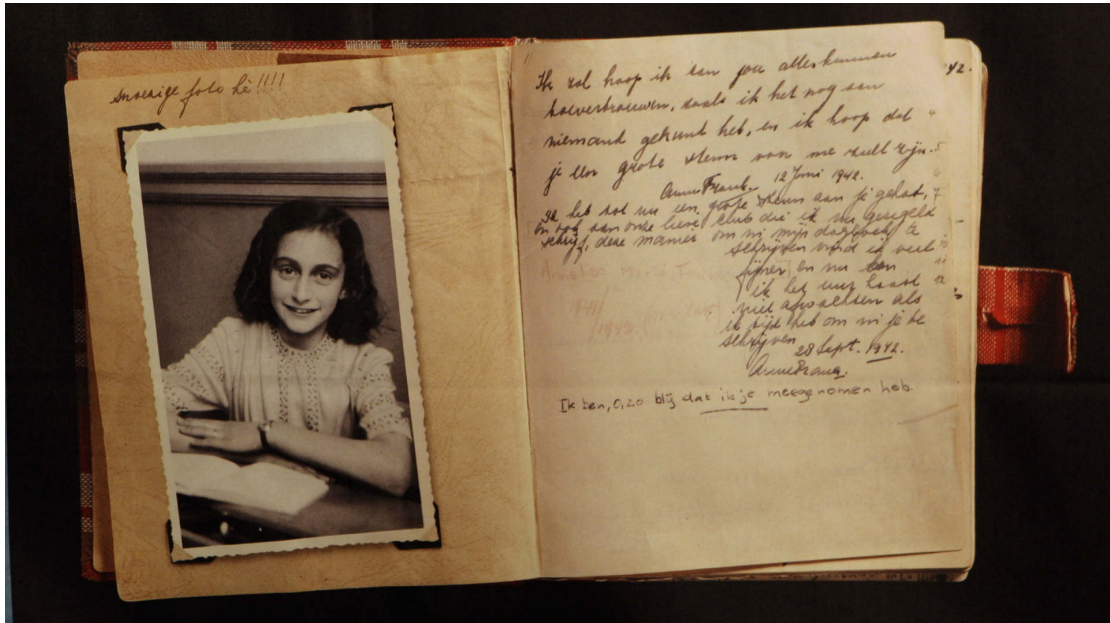 snoezige foto hè!!!!
Ik zal hoop ik aan jou alles kunnen
toevertrouwen, zoals ik het nog aan
niemand gekund heb, en ik hoop dat
je een grote steun voor me zult zijn.
Anne Frank. 12 Juni 1942.
Ik heb tot nu een grote steun aan je gehad,
en ook aan onze lieve club die ik nu geregeld
schrijf, deze manier om in mijn dagboek te
schrijven vind ik veel
fijner en nu kan
ik het uur haast
niet afwachten als
ik tijd heb om in je te
schrijven
28 Sept. 1942.
Anne Frank.
Ik ben, o, zo blij dat ik je meegenomen heb.
42.